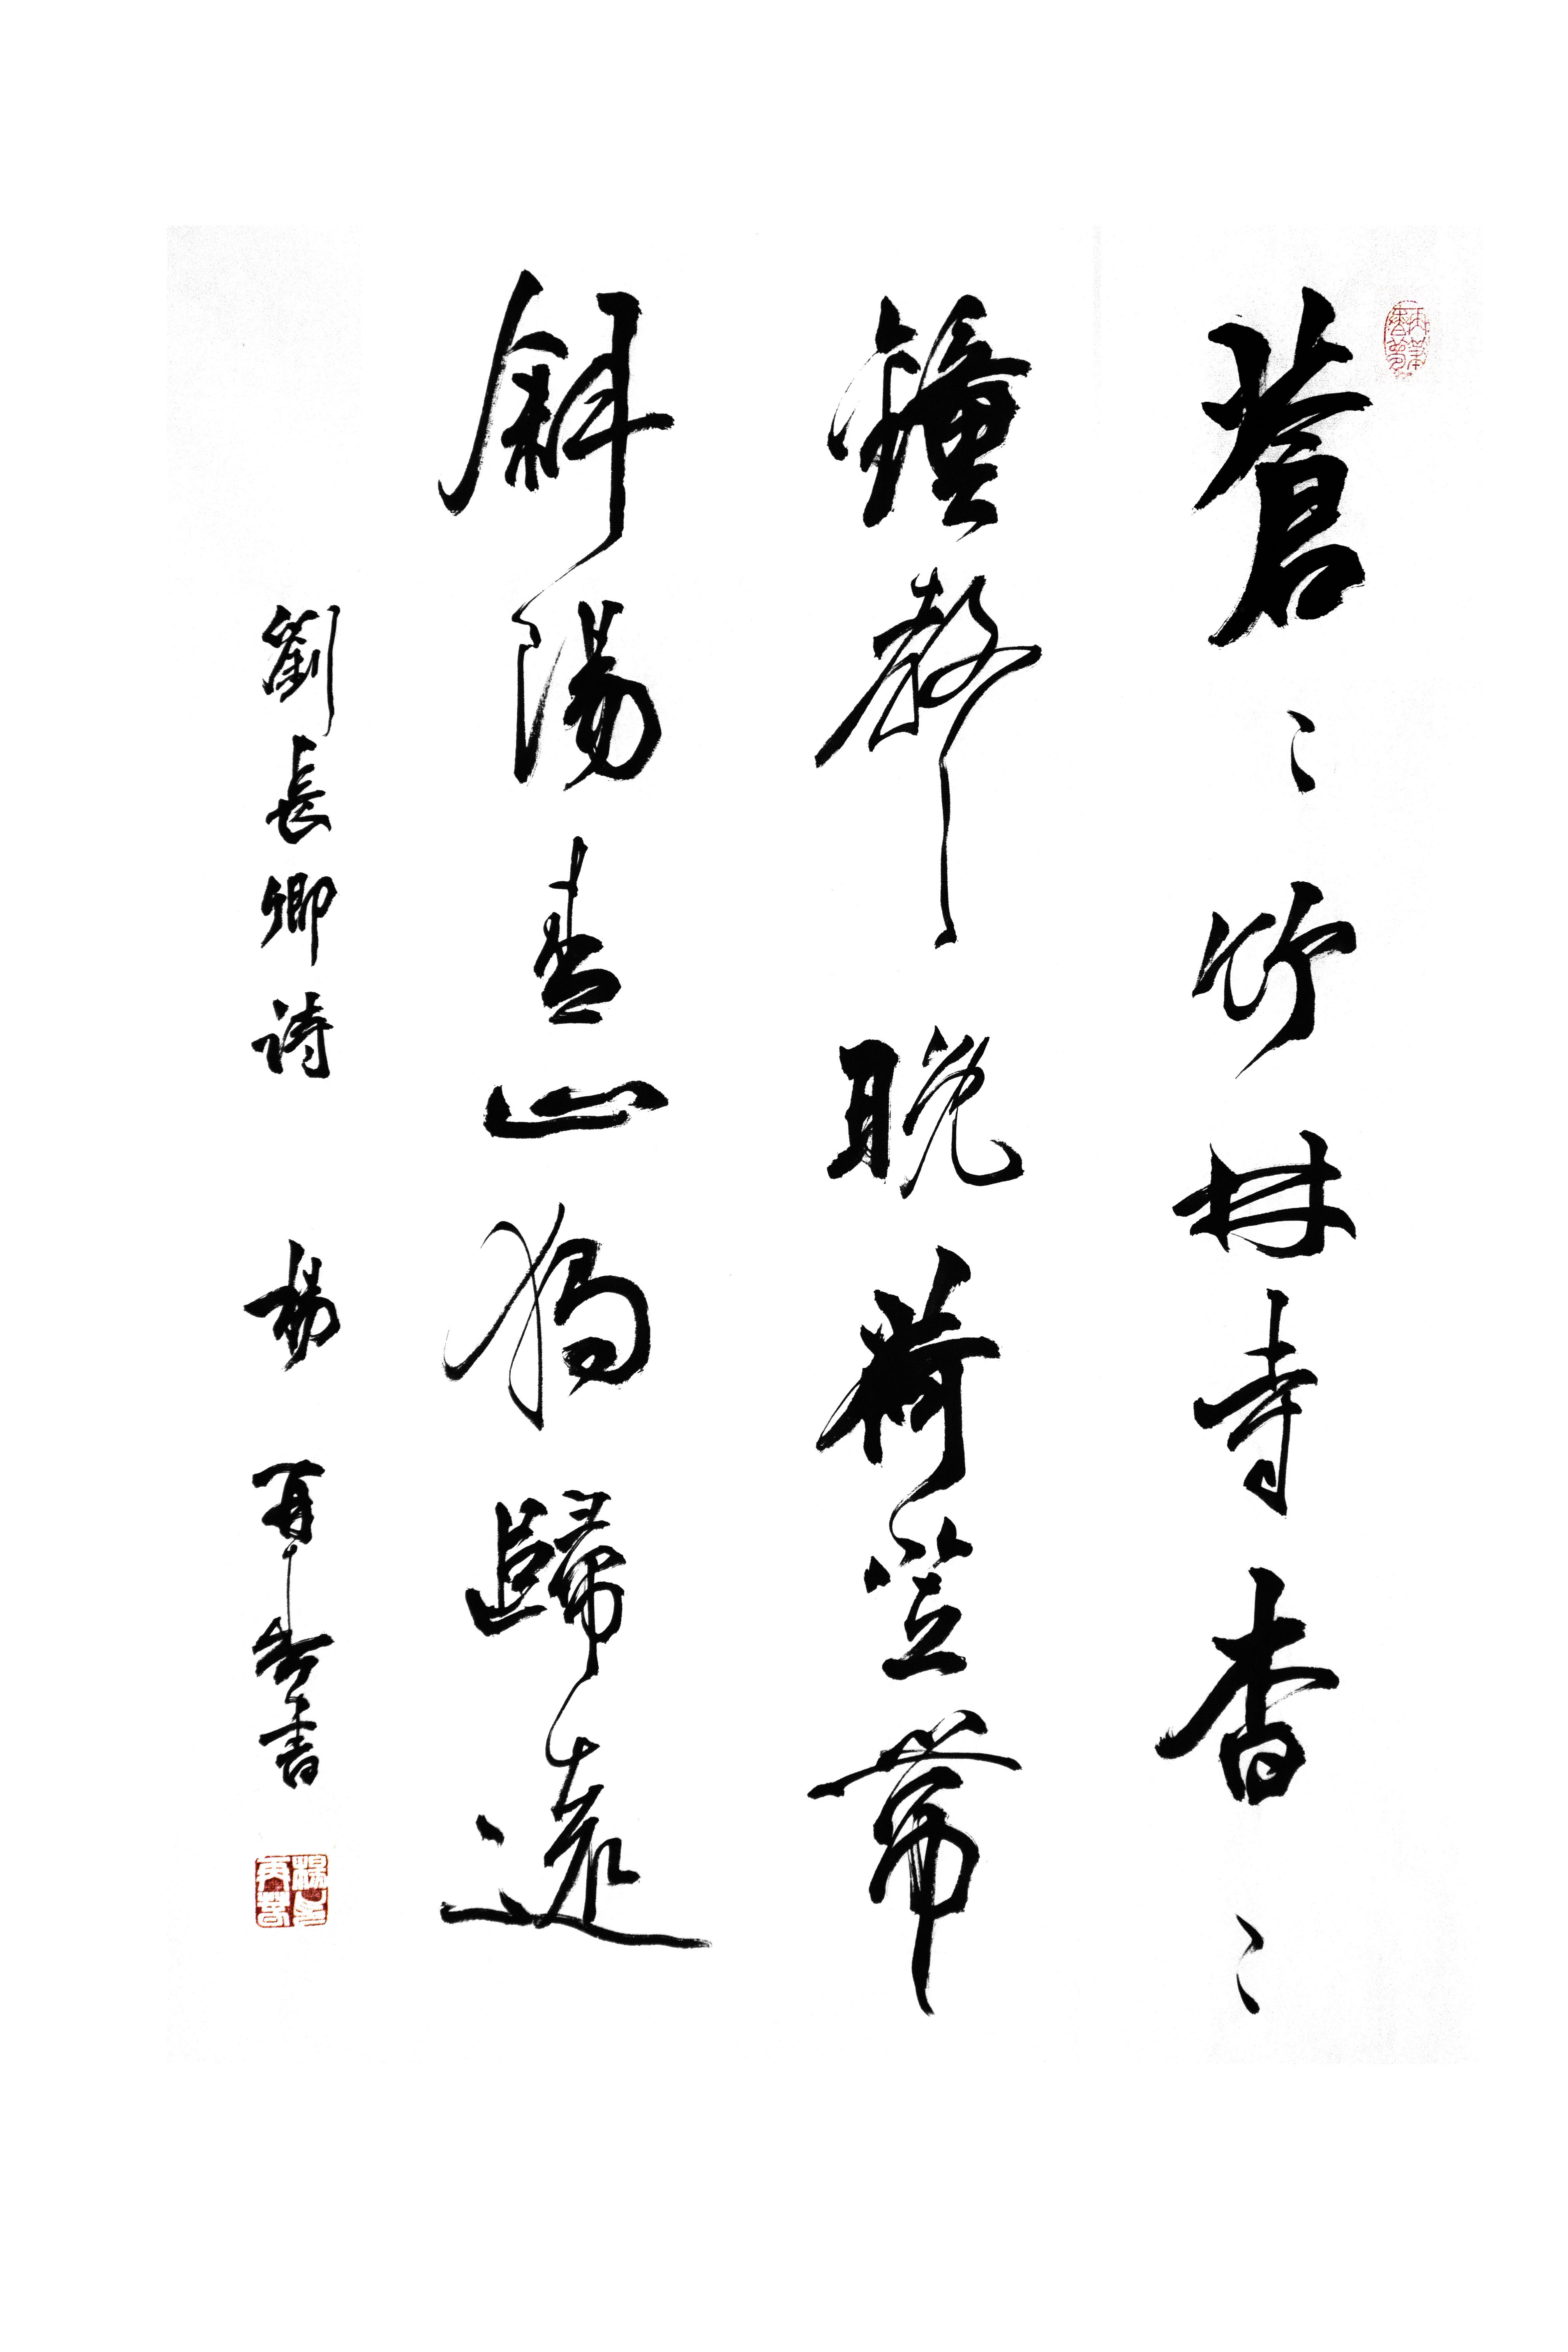 蒼〻竹林寺杳〻
鐘聲晚荷笠帶
斜陽青山獨歸遠
劉長卿詩 楊再春書